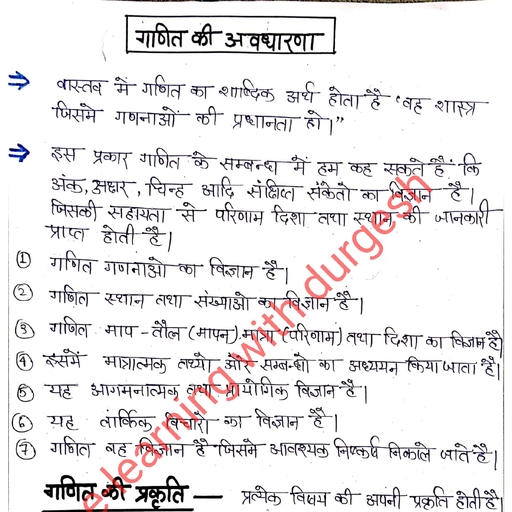 गणित की अवधारणा
⇒ वास्तव में गणित का शाब्दिक अर्थ होता है "वह शास्त्र
जिसमे गणनाओं की प्रधानता हो।"
⇒ इस प्रकार गणित के सम्बन्ध में हम कह सकते हैं कि
अंक, अक्षर, चिन्ह आदि संक्षिप्त संकेतो का विज्ञान है।
जिसकी सहायता से परिणाम दिशा तथा स्थान की जानकारी
प्राप्त होती है।
① गणित गणनाओ का विज्ञान है।
② गणित स्थान तथा संख्याओ का विज्ञान है।
③ गणित माप-तौल (मापन), मात्रा (परिणाम) तथा दिशा का विज्ञान है|
④ इसमें मात्रात्मक तथ्यो और सम्बन्धो का अध्ययन किया जाता है।
⑤ यह आगमनात्मक तथा प्रायोगिक विज्ञान है।
⑥ यह तार्किक विचारो का विज्ञान है।
⑦ गणित वह विज्ञान है जिसमे आवश्यक निष्कर्ष निकाले जाते है।
गणित की प्रकृति — प्रत्येक विषय की अपनी प्रकृति होती है|
e-learning with durgesh